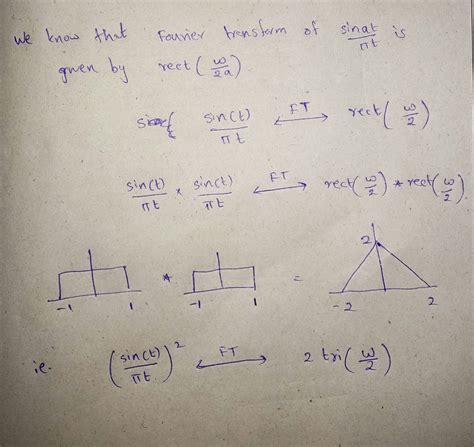 we know that Fourier transform of sinat/πt is
given by rect(ω/2a)
sin(t)/πt ←FT→ rect(ω/2)
sin(t)/πt × sin(t)/πt ←FT→ rect(ω/2) * rect(ω/2)
2
-1 1 * -1 1 = -2 2
ie. (sin(t)/πt)² ←FT→ 2 tri(ω/2)